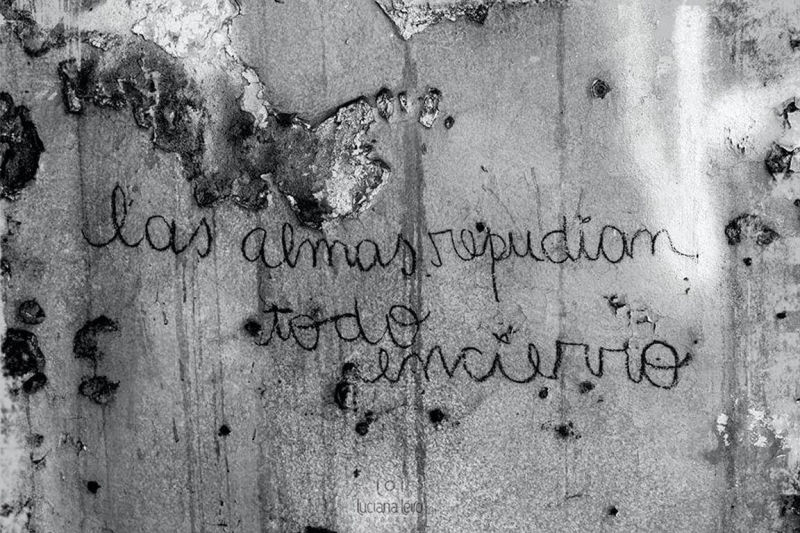 las almas repudian
todo
encierro
luciana leiro